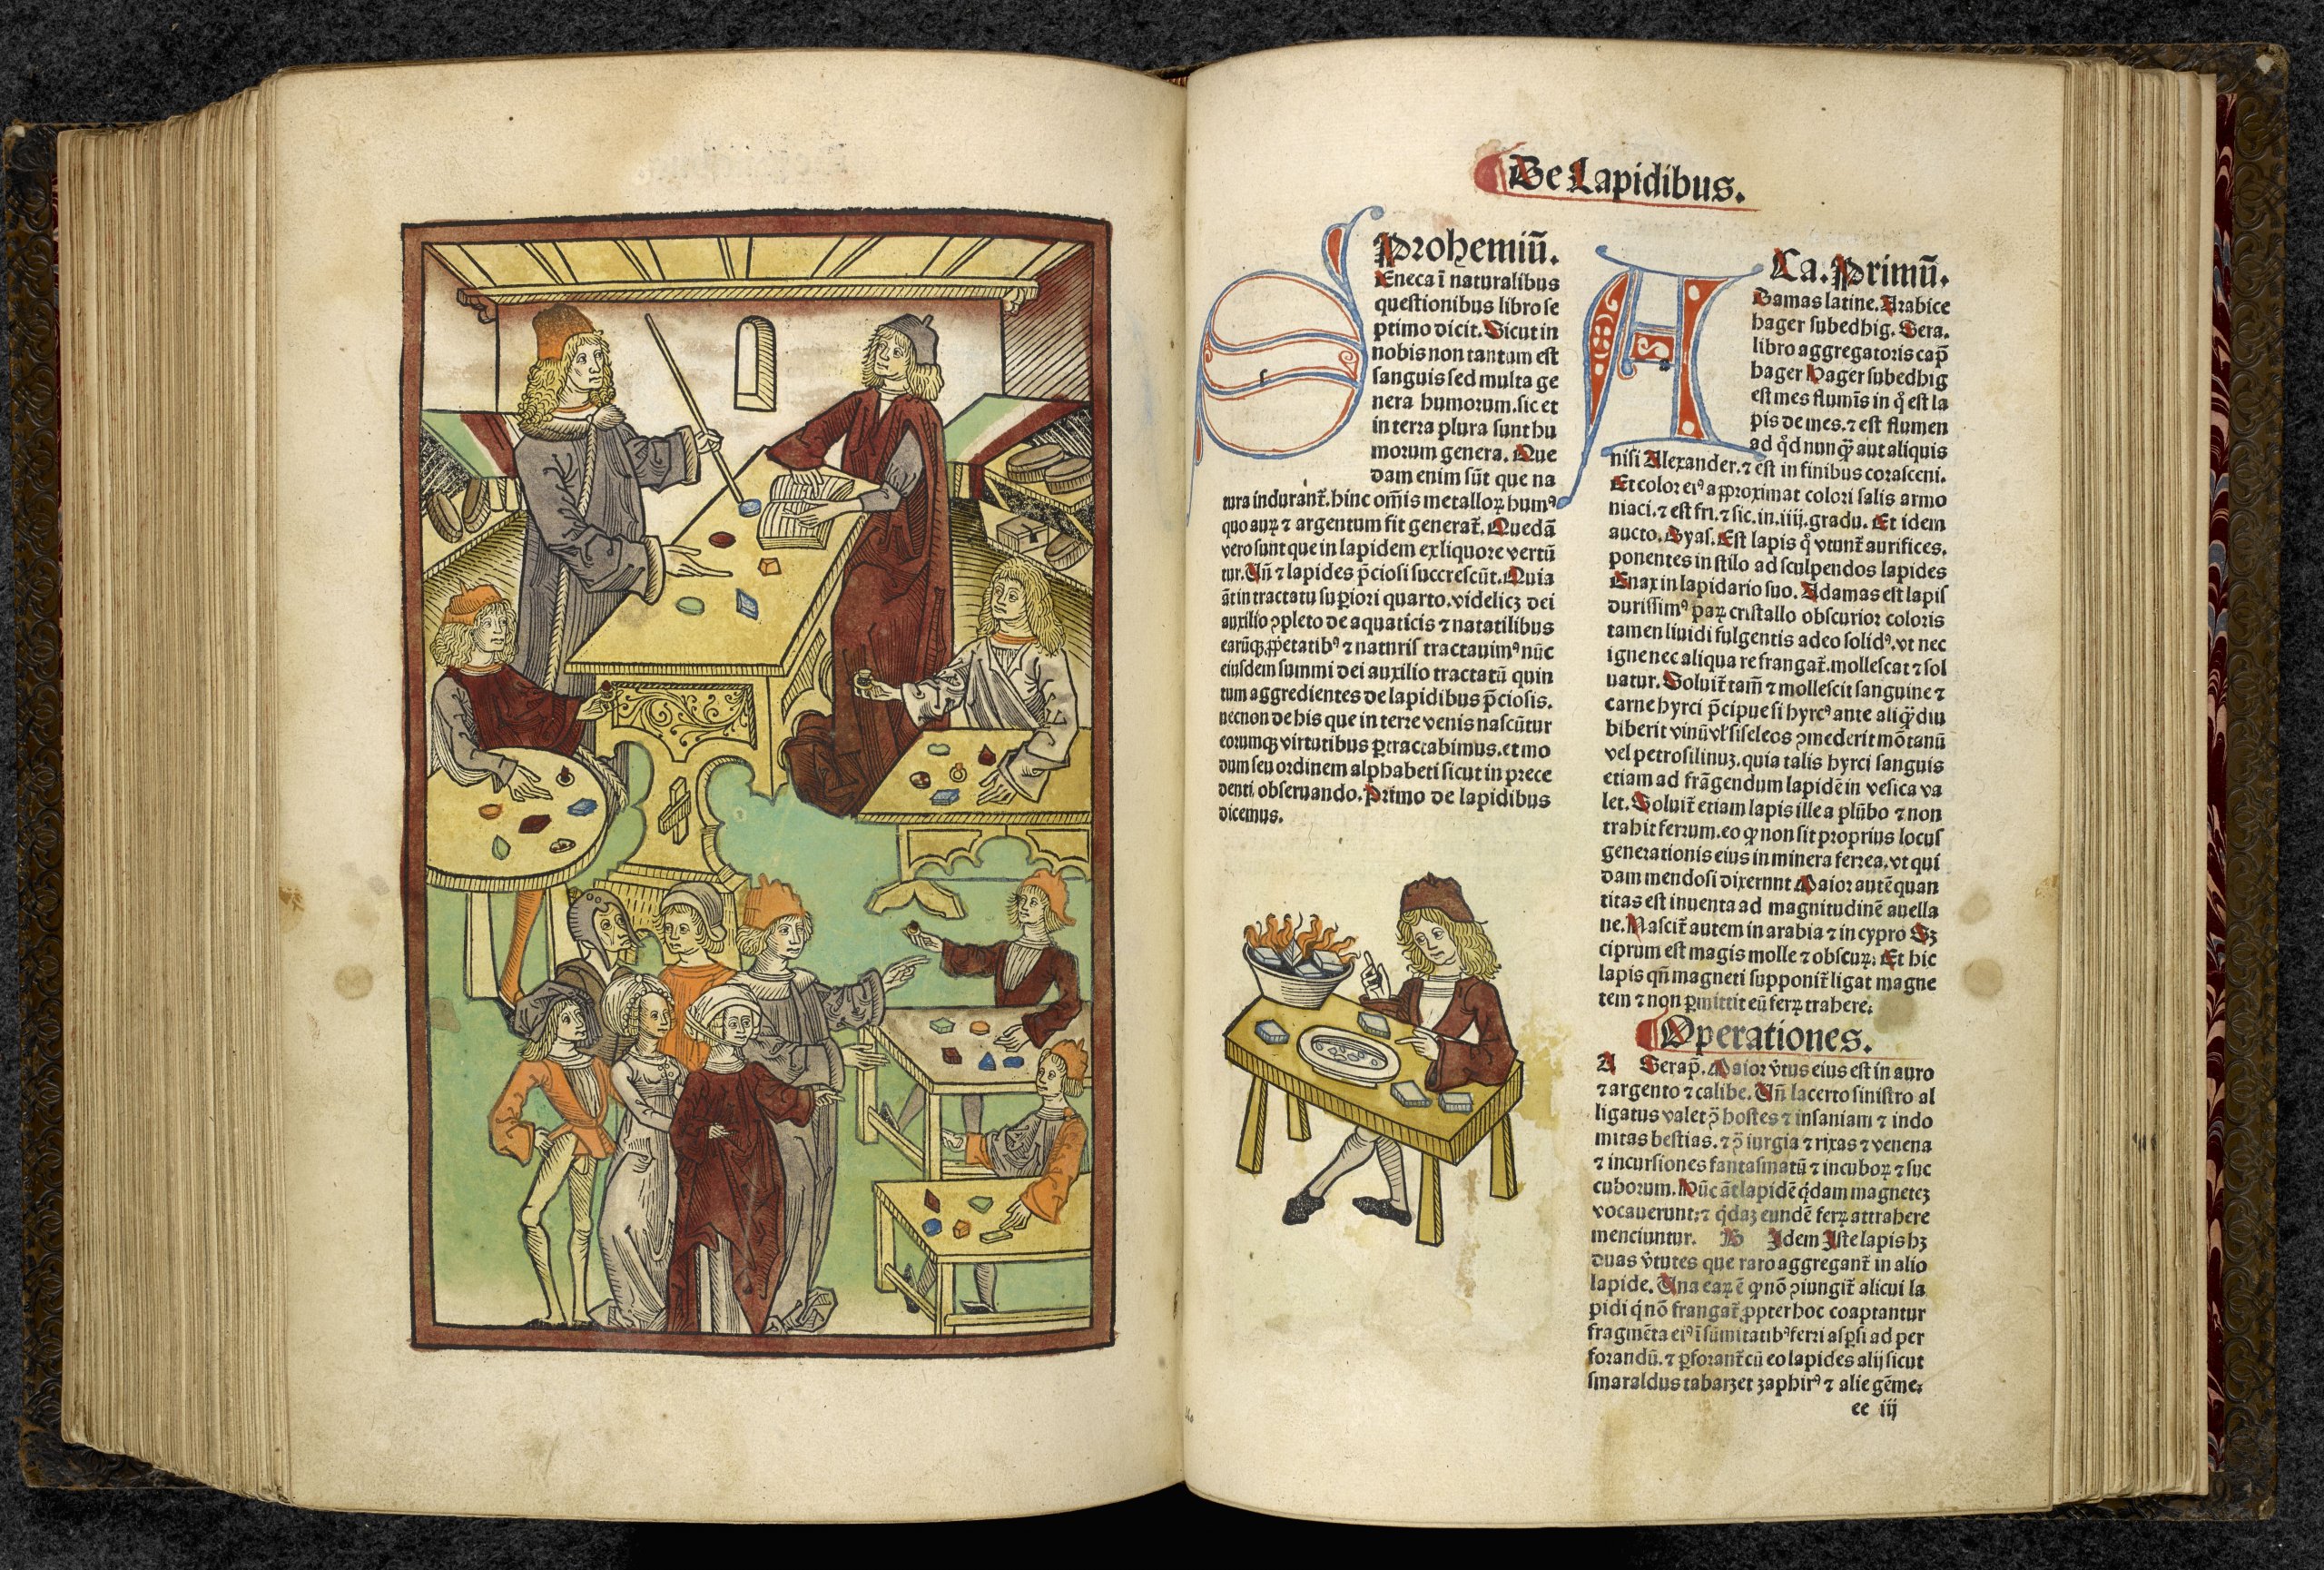 De Lapidibus.
Prohemiū.
Eneca ī naturalibus
questionibus libro se
ptimo dicit. Sicut in
nobis non tantum est
sanguis sed multa ge
nera humorum. sic et
in terra plura sunt hu
morum genera. Que
dam enim sūt que na
tura indurant᷑. hinc om̄is metalloꝝ humꝰ
quo auꝝ ⁊ argentum fit generat᷑. Quedā
vero sunt que in lapidem ex liquore vertū
tur. Uñ ⁊ lapides p̄ciosi succrescūt. Quia
āt in tractatu su ꝑiori quarto. videlicꝫ dei
auxilio ꝯpleto de aquaticis ⁊ natatilibus
earūqꝫ ꝓpetatibꝰ ⁊ naturis tractauimꝰ nūc
eiusdem summi dei auxilio tractatū quin
tum aggredientes de lapidibus p̄ciosis.
necnon de his que in terre venis nascūtur
eorumqꝫ virtutibus ꝑtractabimus. et mo
dum seu ordinem alphabeti sicut in prece
denti obseruando. Primo de lapidibus
dicemus.
Ca. Primū.
Damas latine. Arabice
hager subedhig. Sera.
libro aggregatoris cap̄
hager Hager subedhig
est mes flumīs in q̊ est la
pis de mes. ⁊ est flumen
ad qd̊ nunq̄ꝫ aut aliquis
nisi Alexander. ⁊ est in finibus corasceni.
Et color eiꝰ aꝓproximat colori salis armo
niaci. ⁊ est fri. ⁊ sic. in. iiij. gradu. Et idem
aucto. Dyas. Est lapis q̊ vtunt᷑ aurifices.
ponentes in stilo ad sculpendos lapides
Enax in lapidario suo. Adamas est lapis
durissimꝰ paꝝ cristallo obscurior coloris
tamen liuidi fulgentis adeo solidꝰ. vt nec
igne nec aliqua re frangat᷑. mollescat ⁊ sol
uatur. Soluit᷑ tam̄ ⁊ mollescit sanguine ⁊
carne hyrci p̄cipue si hyrcꝰ ante aliq̄ꝫdiu
biberit vinū vl̄ siseleos ꝯmederit mōtanū
vel petrosilinuꝫ. quia talis hyrci sanguis
etiam ad frāgendum lapidē in vesica va
let. Soluit᷑ etiam lapis ille a plūbo ⁊ non
trahit ferrum. eo ꝙ non sit proprius locus
generationis eius in minera ferrea. vt qui
dam mendosi dixernnt Maior autē quan
titas est inuenta ad magnitudinē auella
ne. Nascit᷑ autem in arabia ⁊ in cypro Sꝫ
ciprum est magis molle ⁊ obscuꝝ: Et hic
lapis qn̄ magneti supponit᷑ ligat magne
tem ⁊ non ꝑmittit eū ferꝝ trahere:
Operationes.
A Serap̄. Maior v̄tus eius est in auro
⁊ argento ⁊ calibe. Uñ lacerto sinistro al
ligatus valet ꝯ̄ hostes ⁊ insaniam ⁊ indo
mitas bestias. ⁊ ꝯ̄ iurgia ⁊ rixas ⁊ venena
⁊ incursiones fantasmatū ⁊ incuboꝝ ⁊ suc
cuborum. Hūc āt lapidē q̇dam magneteꝫ
vocauerunt: ⁊ q̇daꝫ eundē ferꝝ attrahere
menciuntur. B Idem Iste lapis hꝫ
duas v̄tutes que raro aggregant᷑ in alio
lapide. Una eaꝝ ē ꝙ nō ꝯiungit᷑ alicui la
pidi q̇ nō frangat᷑. ꝓpter hoc coaptantur
fragmēta eiꝰ ī sūmitatibꝰ ferri aspersi ad per
forandū. ⁊ ꝑforant᷑ cū eo lapides alij sicut
smaraldus tabarzet zaphirꝰ ⁊ alie gēme:
ee iij